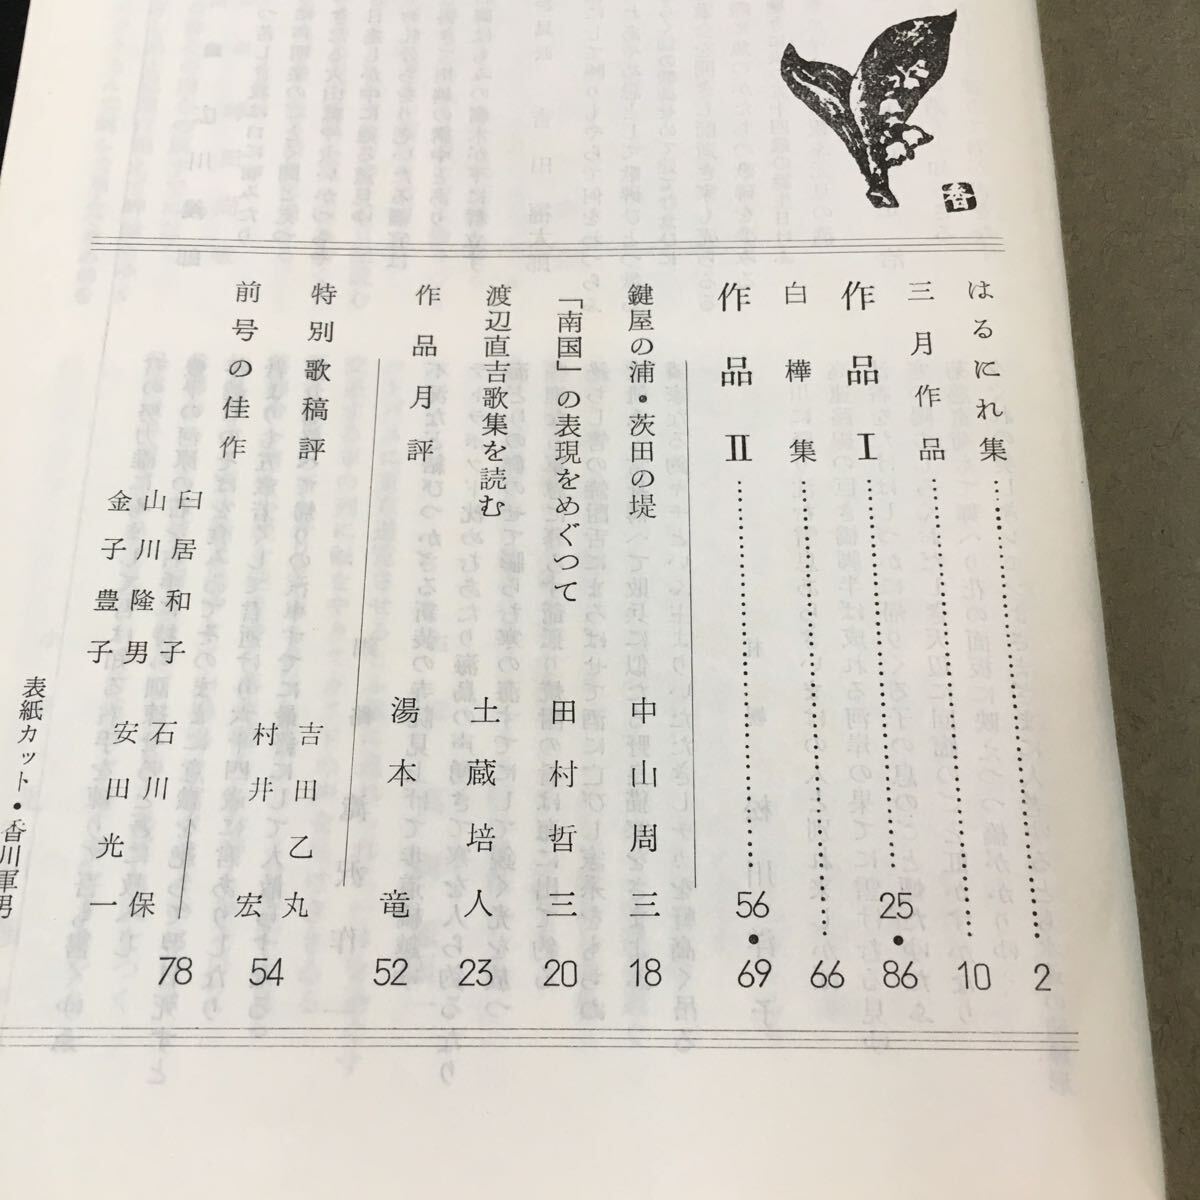 香
はるにれ集…………2
三月作品…………10
作品Ⅰ…………25・86
白樺集…………66
作品Ⅱ…………56・69
鍵屋の浦・茨田の堤 中山周三 18
「南国」の表現をめぐつて 田村哲三 20
渡辺直吉歌集を読む 土蔵培人 23
作品月評 湯本竜 52
特別歌稿評 吉田乙丸
村井宏 54
前号の佳作
臼居和子 石川保
山川隆男 安田光一
金子豊子 78
表紙カット・香川軍男